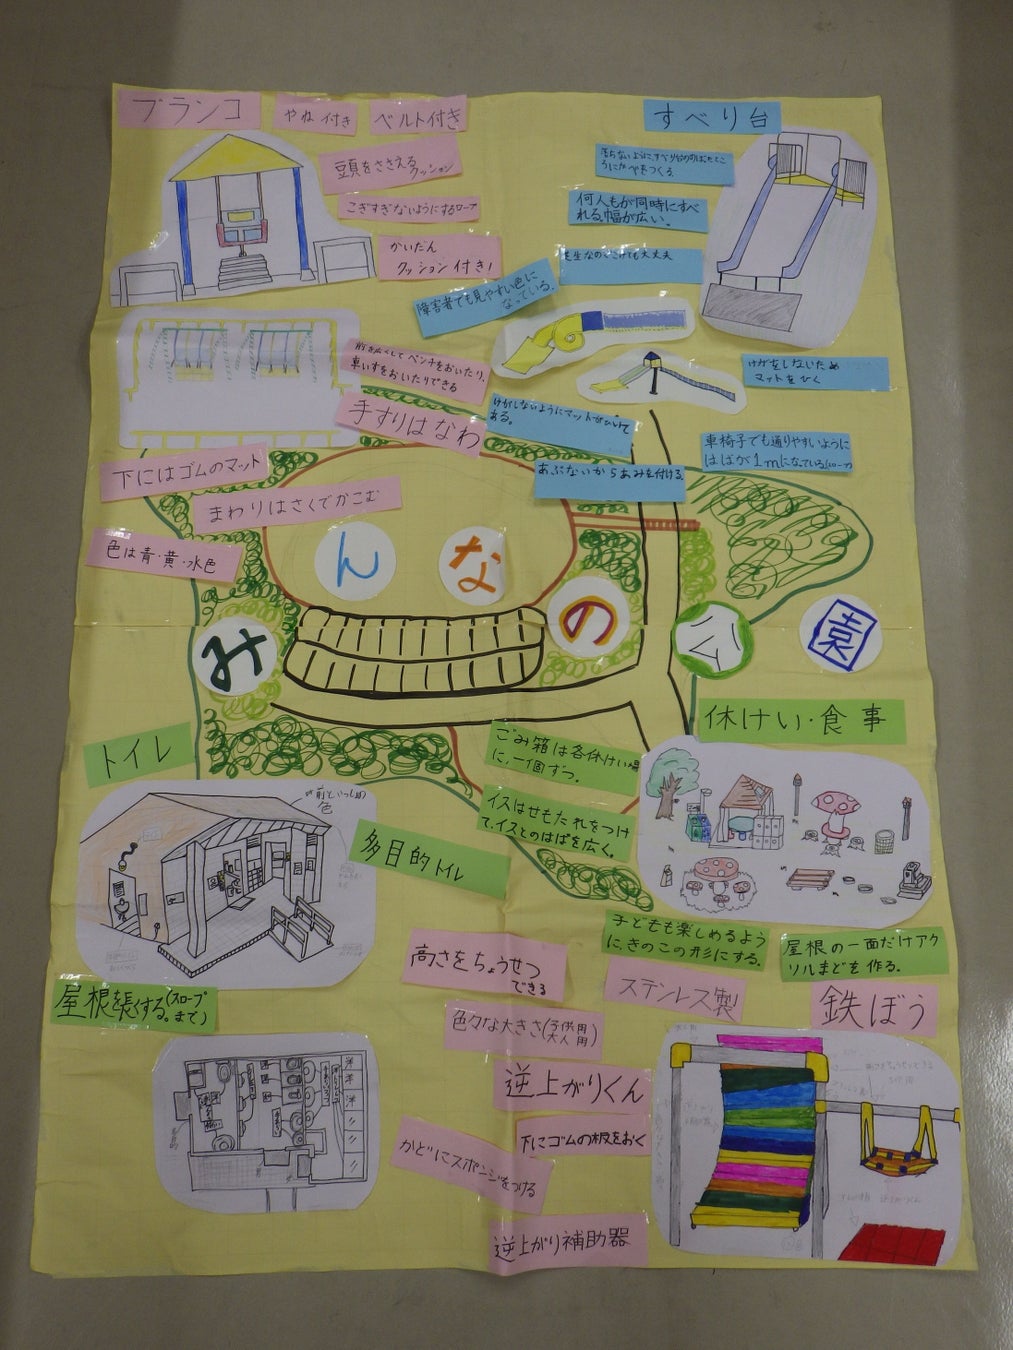 ブランコ
やね付き
ベルト付き
豆頭をささえる
クッション
こぎすぎないようにするロープ
かいだん
クッション付き!
前を広くしてベンチをおいたり、
車いすをおいたりできる
手すりはなわ
下にはゴムのマット
まわりはさくでかこむ
色は青・黄・水色
すべり台
何人もが同時にすべ
れる幅が広い。
芝生なのでこけても大丈夫
障害者でも見やすい色に
なっている。
けがをしないため
マットをひく
けがしないようにマットがひいて
ある。
車椅子でも通りやすいように
はばが1mになっている
あぶないからあみを付ける
みんなの公園
休けい・食事
ごみ箱は各休けい場
に、一個ずつ。
イスはせもたれをつけ
て、イスとのはばを広く。
子どもも楽しめるよう
に、きのこの形にする。
屋根の一面だけアク
リルまどを作る。
トイレ
多目的トイレ
前といっしょの
色
屋根を長くする(スロープ
まで)。
鉄ぼう
ステンレス製
高さをちょうせつ
できる
色々な大きさ(子供用
大人用)
逆上がりくん
下にゴムの板をおく
かどにスポンジをつける
逆上がり補助器